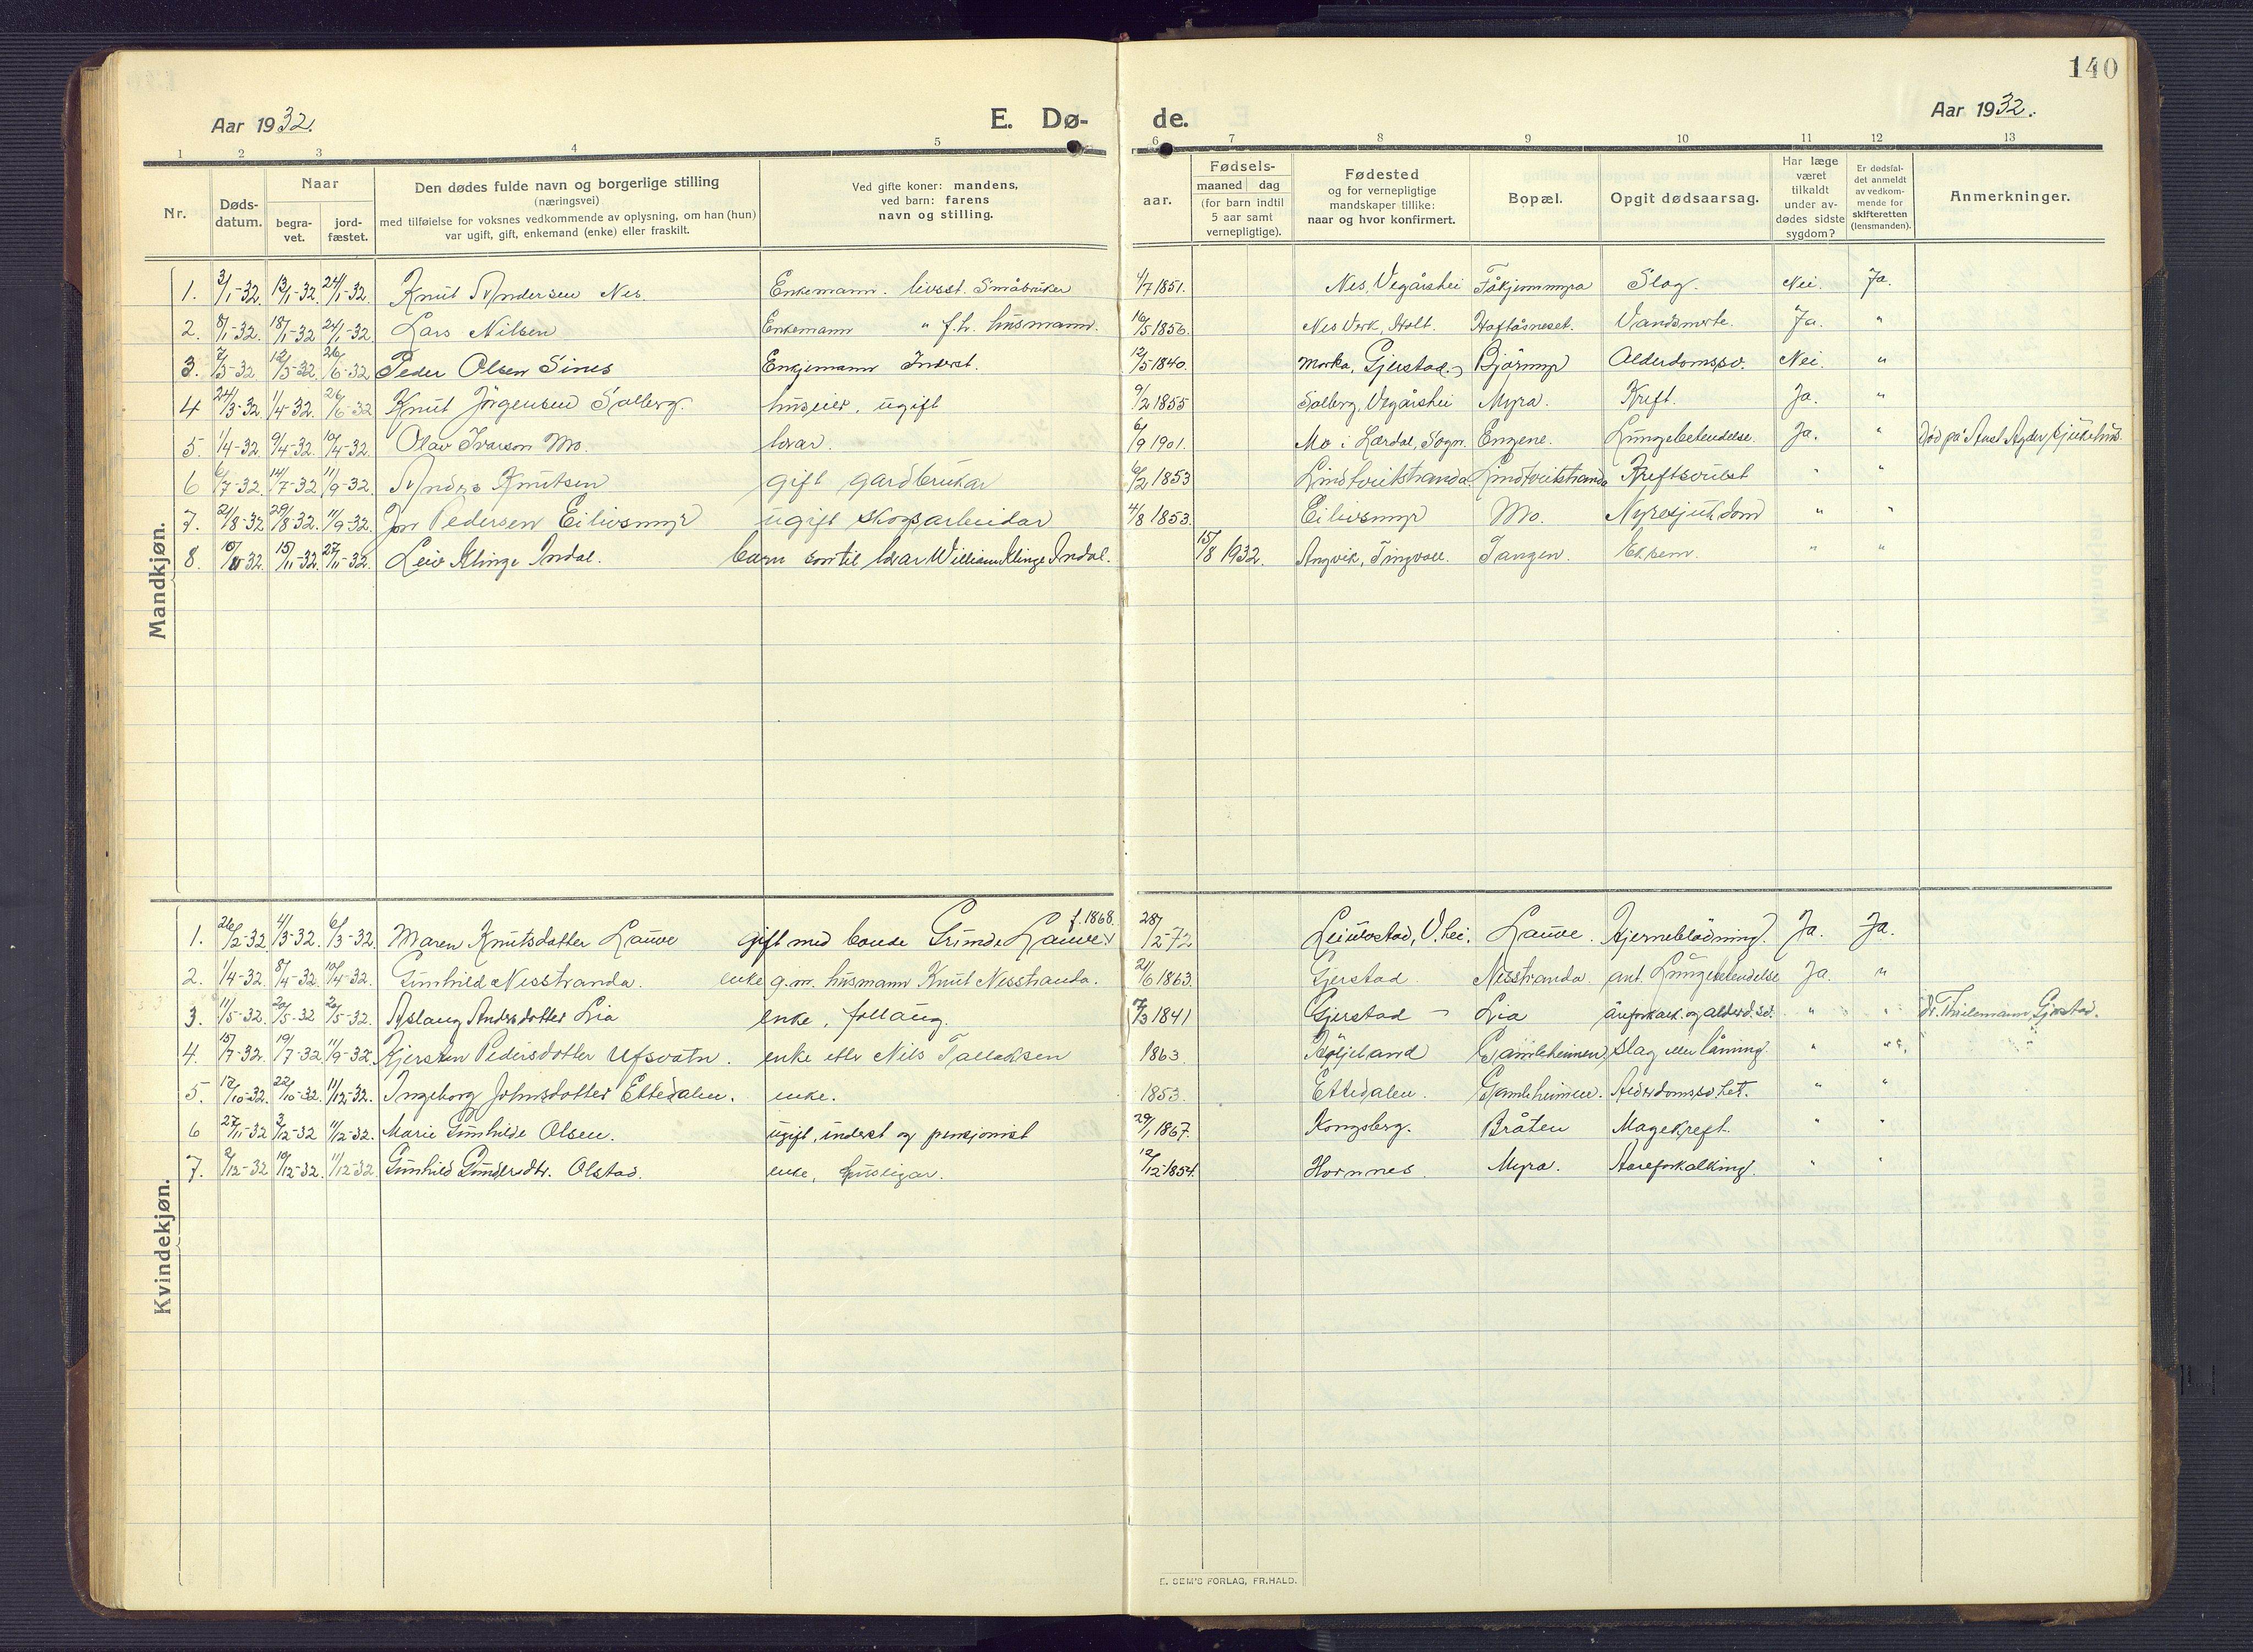 140
Aar 1932.
E. Dø-
de.
Aar 1932.
1 2 3 4 5 6 7 8 9 10 11 12 13
Nr.
Døds-
datum.
Naar
begra-
vet.
jord-
fæstet.
Den dødes fulde navn og borgerlige stilling
(næringsvei)
med tilføielse for voksnes vedkommende av oplysning, om han (hun)
var ugift, gift, enkemand (enke) eller fraskilt.
Ved gifte koner: mandens,
ved barn: farens
navn og stilling.
aar.
Fødsels-
maaned dag
(for barn indtil
5 aar samt
vernepligtige).
Fødested
og for vernepligtige
mandskaper tillike:
naar og hvor konfirmert.
Bopæl.
Opgit dødsaarsag.
Har læge
været
tilkaldt
under av-
dødes sidste
sygdom?
Er dødsfal-
det anmeldt
av vedkom-
mende for
skifteretten
(lensmanden).
Anmerkninger.
Mandkjøn.
1. 3/1-32. 13/1-32. 24/1-32. Knut Andersen Nes. Enkemann. livsst. Småbruker 4/7 1851. Nes, Vegårshei Slag. Nei. Ja.
2. 8/1-32. 18/1-32 24/1-32 Lars Nilsen Enkemann " f.h. husmann. 16/5 1856. Nes Verk, Holt. Haftåsneset. Ja. "
3. 7/3-32 12/3-32. 26/6-32 Peder Olsen Sines Enkjemann Inderst. 12/5 1840. Morka, Gjerstad. Bjårmyr Alderdomssv. Nei. "
4 24/3-32. 1/4-32. 26/6-32 Knut Jörgensen Salberg. huseier, ugift 9/2 1855 Salberg, Vegårshei Myra. Kreft. Ja. "
5. 1/4-32. 9/4-32. 10/4-32. Olav Ivarson Mo. lærar. 6/9 1901. Mo i Lærdal, Sogn. Engene. Lungebetendelse. Ja. " Död på Aust Agder sjukehus.
6 6/7-32. 14/7-32 11/9-32. Anders Knutsen gift gardbrukar 6/2 1853 Lindtveitstranda. Lindtveitstranda Kreftsvulst " "
7. 21/8-32 29/8-32. 11/9-32. Jon Pedersen Eilivsmyr ugift skogsarbeidar 4/8 1853. Eilivsmyr Mo. Nyresjukdom " "
8. 10/11-32. 15/11-32. 27/11-32. Leiv Klinge Indal. barn son til lærar William Klinge Indal. 15/8 1932. Angvik, Tingvoll. Tangen. Eksem. " "
Kvindekjøn.
1. 26/2-32 4/3-32. 6/3-32. Maren Knutsdatter Lauve gift med bonde Grunde Lauve f. 1868. 28/12-72 Leiulvstad, V.hei. Lauve. Hjerneblödning. Ja. Ja.
2. 1/4-32. 8/4-32. 10/4-32. Gunhild Nesstranda. enke g.m. husmann Knut Nesstranda. 21/6 1863. Gjerstad. Nesstranda. ant. Lungebetendelse Ja. "
3. 11/5-32. 20/5-32 20/5-32. Aslaug Andersdotter Lia enke, follaug. 7/3 1841 Gjerstad Lia åreforkalk. og alderd.sv. " " dr. Thielemann Gjerstad.
4. 15/7-32. 19/7-32 11/9-32. Kjersten Pedersdotter Ufsvatn. enke etter Nils Tallaksen 1863. Gamleheimen, Slag eller låming. " "
5. 12/10-32. 22/10-32. 11/12-32. Ingeborg Johnsdotter Ettedalen. enke. 1853. Ettedalen. Gamleheimen. Alderdomssv.het. " "
6 27/11-32 3/12-32 11/12-32. Marie Gunhilde Olsen. ugift, inderst og pensjonist 29/1 1867. Kongsberg. Bråten Magekreft. " "
7. 2/12-32 10/12-32. 11/12-32 Gunhild Gundersdtr. Olstad. enke, huseigar. 12/12 1854. Hornnes Myra. Aareforkalking. " "
E. SEM'S FORLAG, FR.HALD.